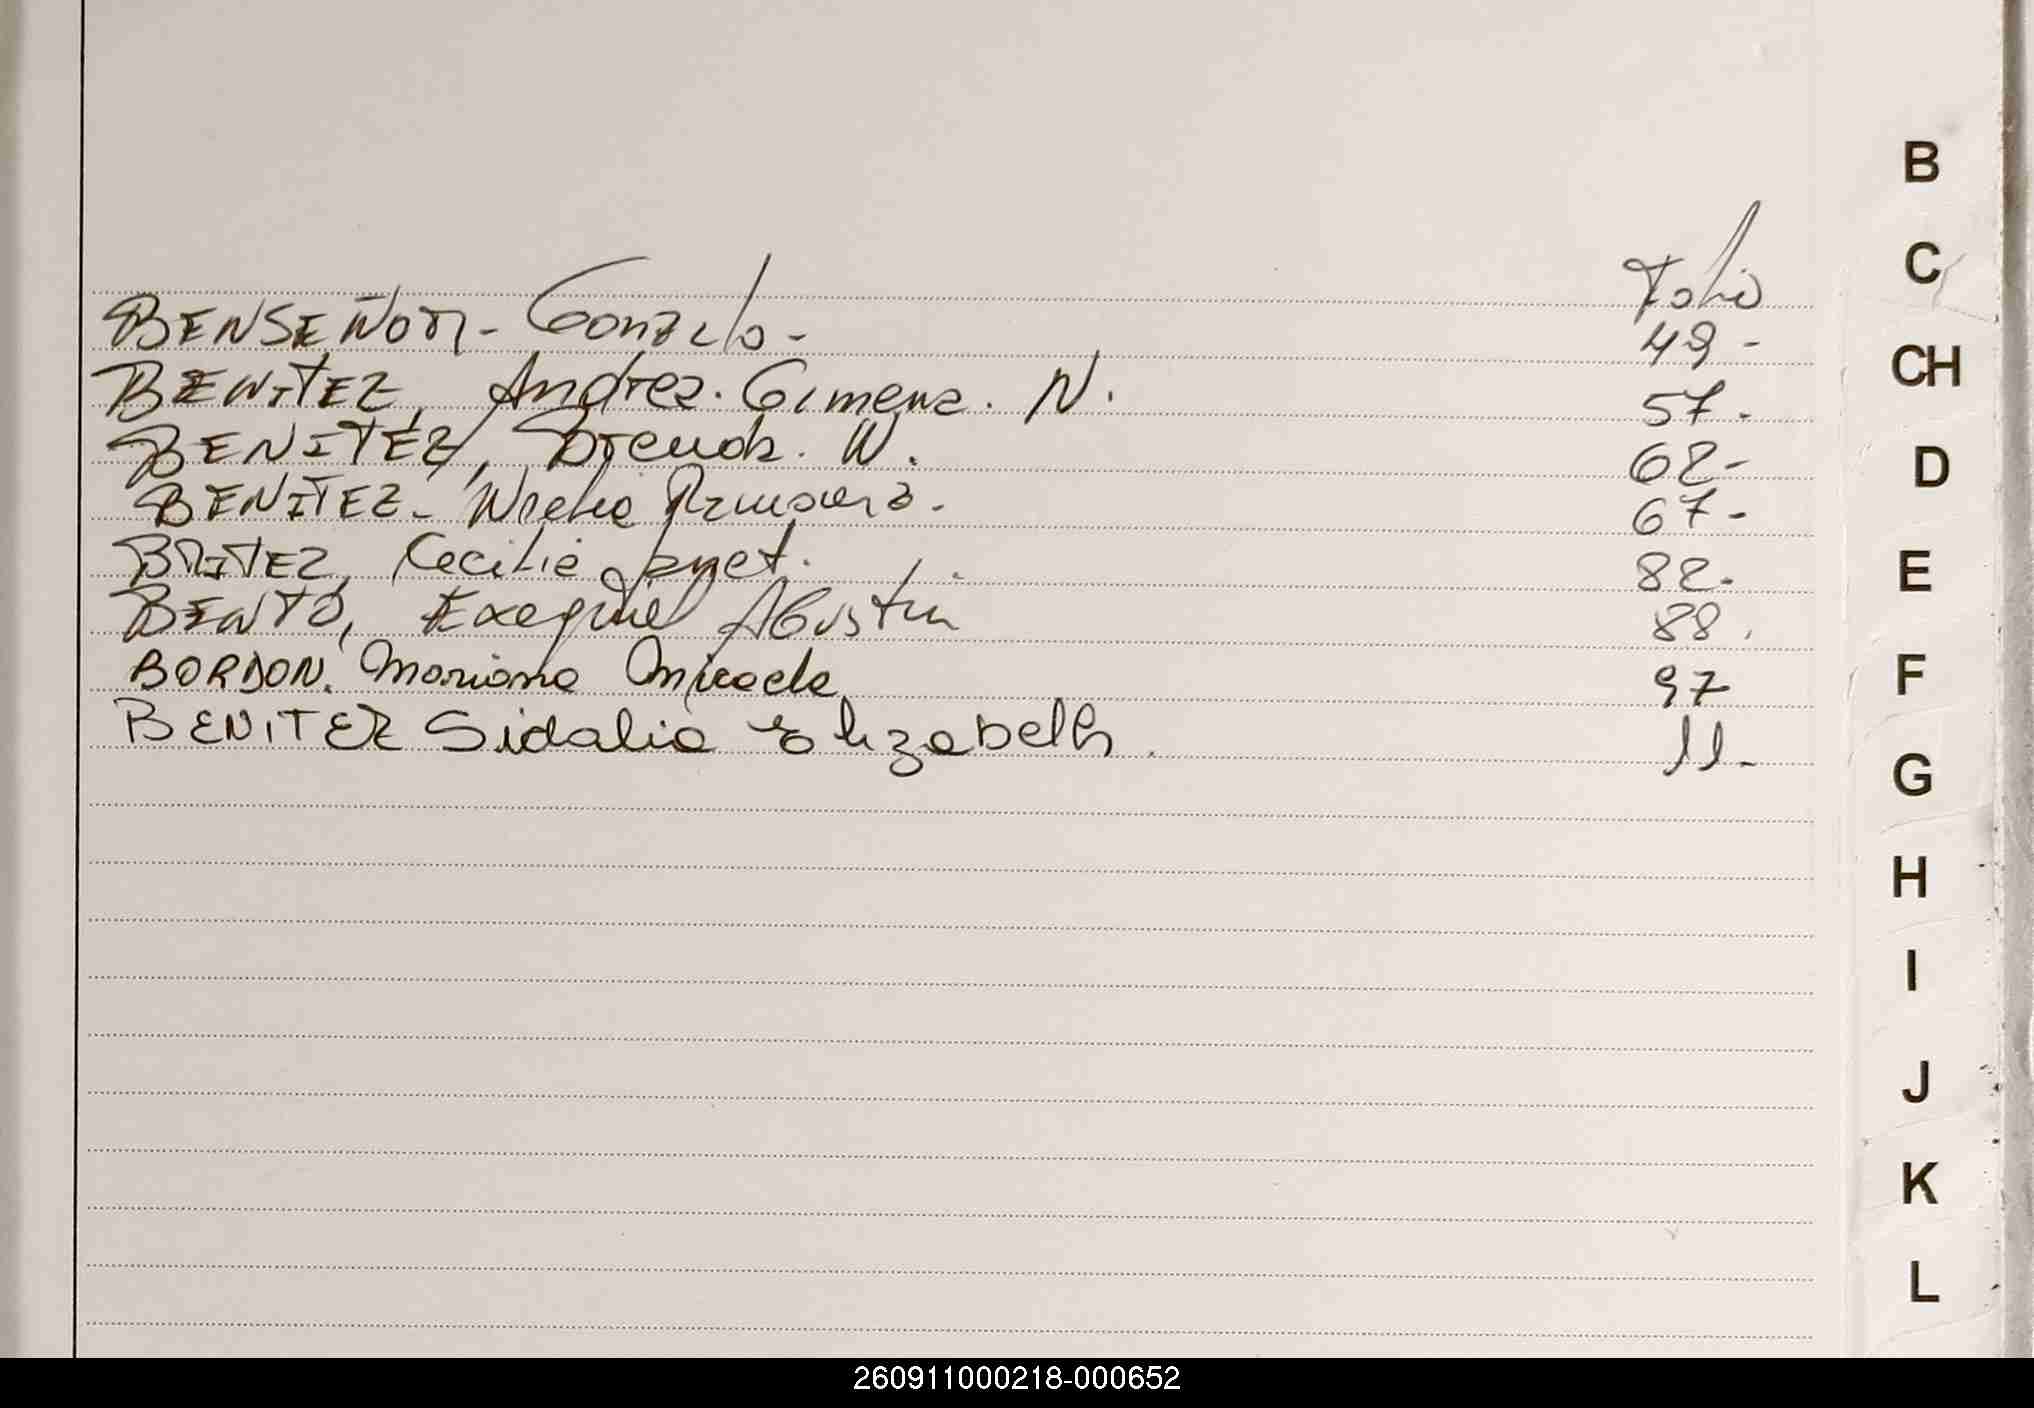 Folio
BENSEÑOR - Gonzalo - 49 -
BENITEZ, Andrea. Gimena. N. 57 -
BENITEZ, Brenda. N. 62 -
BENITEZ - 67 -
BRITEZ, Cecilia Janet. 82 -
BENTO, Exequiel Agustin 88.
BORDON. Mariana Micaela 97
BENITEZ Sidalia Elizabeth. 11 -
B
C
CH
D
E
F
G
H
I
J
K
L
260911000218-000652